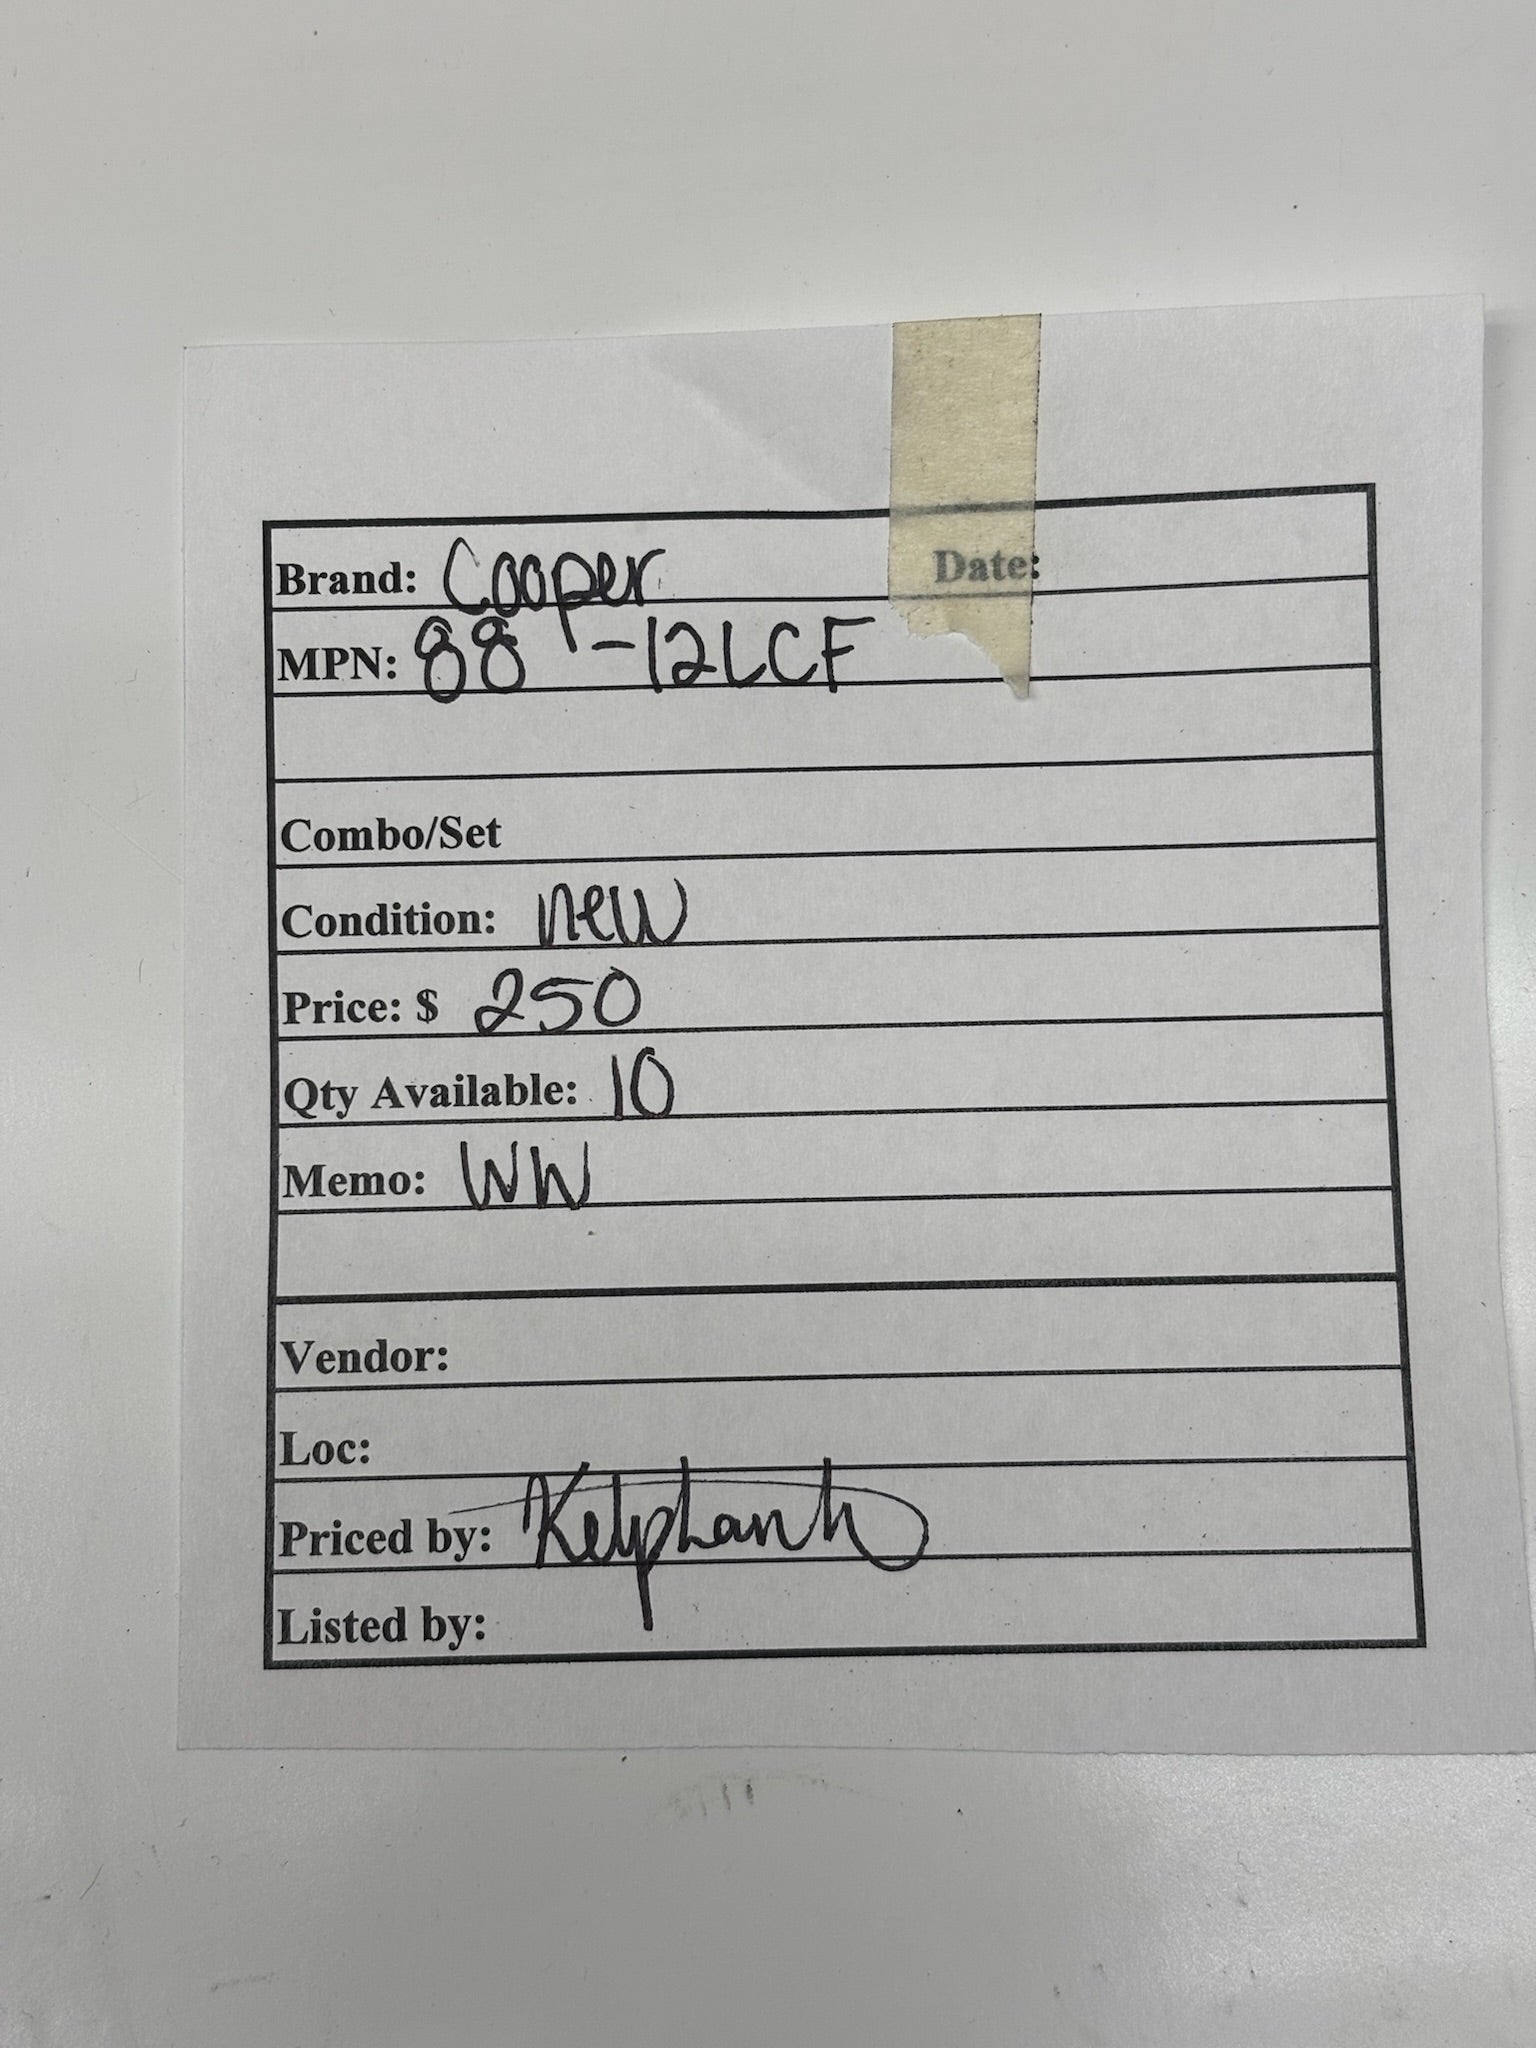 Brand: Cooper Date:
MPN: 88-12LCF
Combo/Set
Condition: new
Price: $ 250
Qty Available: 10
Memo: WW
Vendor:
Loc:
Priced by:
Listed by: